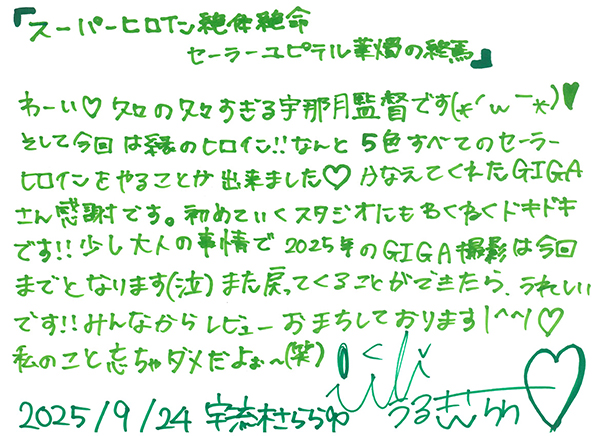 『スーパーヒロイン絶体絶命
セーラーユピテル 華燭の終焉』
わーい♡ 久々の久々すぎる宇那月監督です(*´ω｀*)♥
そして今回は緑のヒロイン!! なんと 5色すべてのセーラー
ヒロインをやることが出来ました♡ かなえてくれたGIGA
さん感謝です。初めていくスタジオにもわくわくドキドキ
です!! 少し大人の事情で 2025年のGIGA撮影は今回
までとなります(泣) また戻ってくることができたら、うれしい
です!! みんなからレビューおまちしております(^^)♡
私のこと忘ちゃダメだよぉ〜(笑)
2025/9/24 宇流木さらら